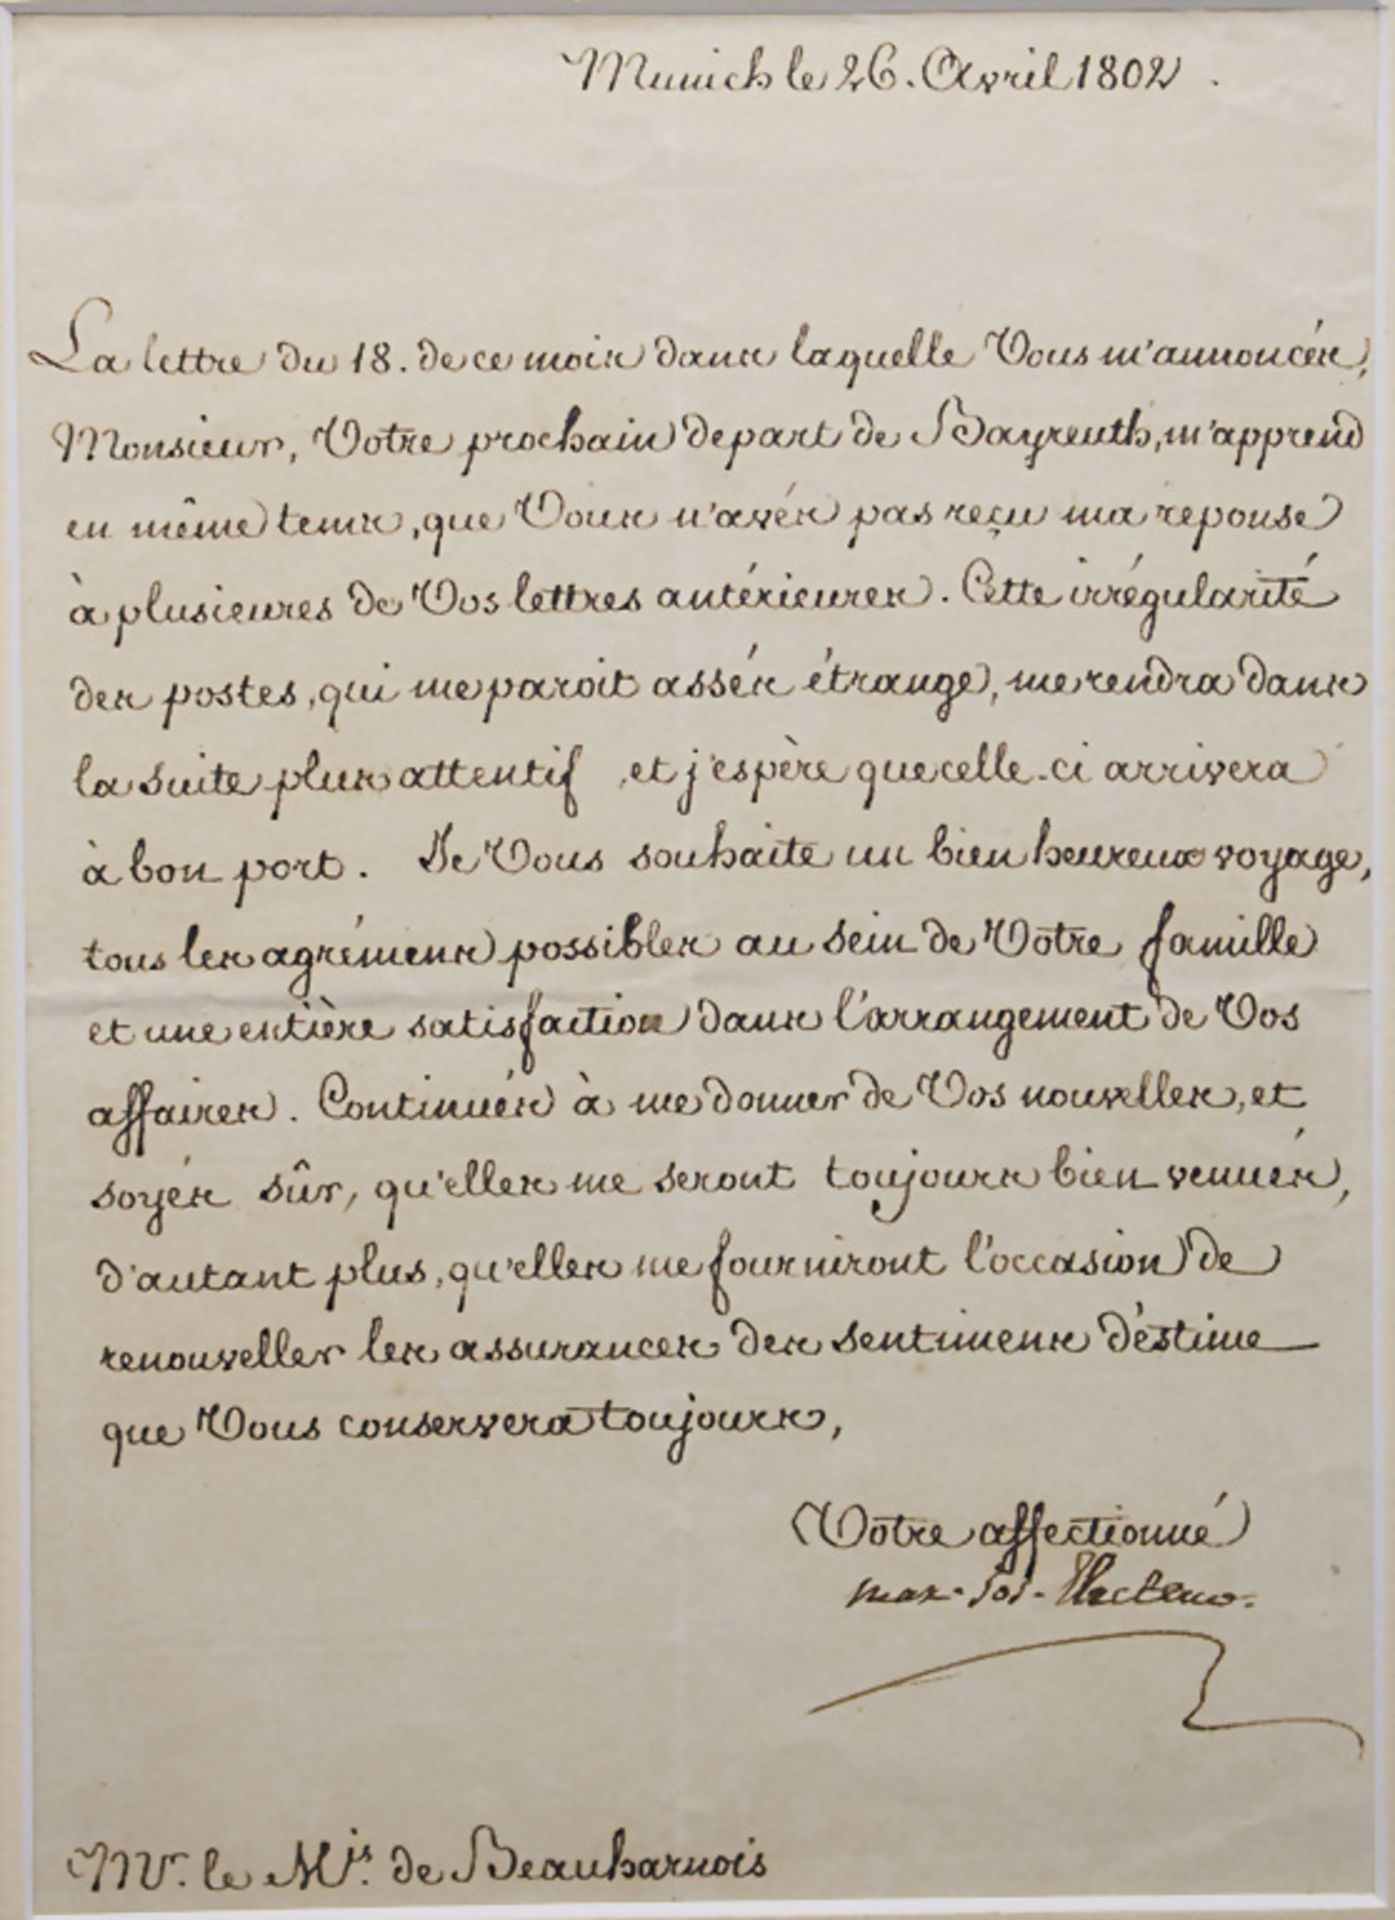 Munich le 26. Avril 1802.
La lettre du 18. de ce mois dans laquelle Vous m'annoncés,
Monsieur, Votre prochain depart de Bayreuth, m'apprend
en même tems, que Vous n'avés pas reçu ma reponse
à plusieures de Vos lettres antérieures. Cette irrégularité
des postes, qui me paroit assés étrange, me rendra dans
la suite plus attentif, et j'espère que celle-ci arrivera
à bon port. Je Vous souhaite un bien heureux voyage,
tous les agrémens possibles au sein de Votre famille
et une entière satisfaction dans l'arrangement de Vos
affaires. Continués à me donner de Vos nouvelles, et
soyés sûr, qu'elles me seront toujours bien venués,
d'autant plus, qu'elles me fourniront l'occasion de
renouveller les assurances des sentimens d'éstime
que Vous conservera toujours,
Votre affectionné
max. Jos. Electeur.
Mr. le Mis. de Beauharnois